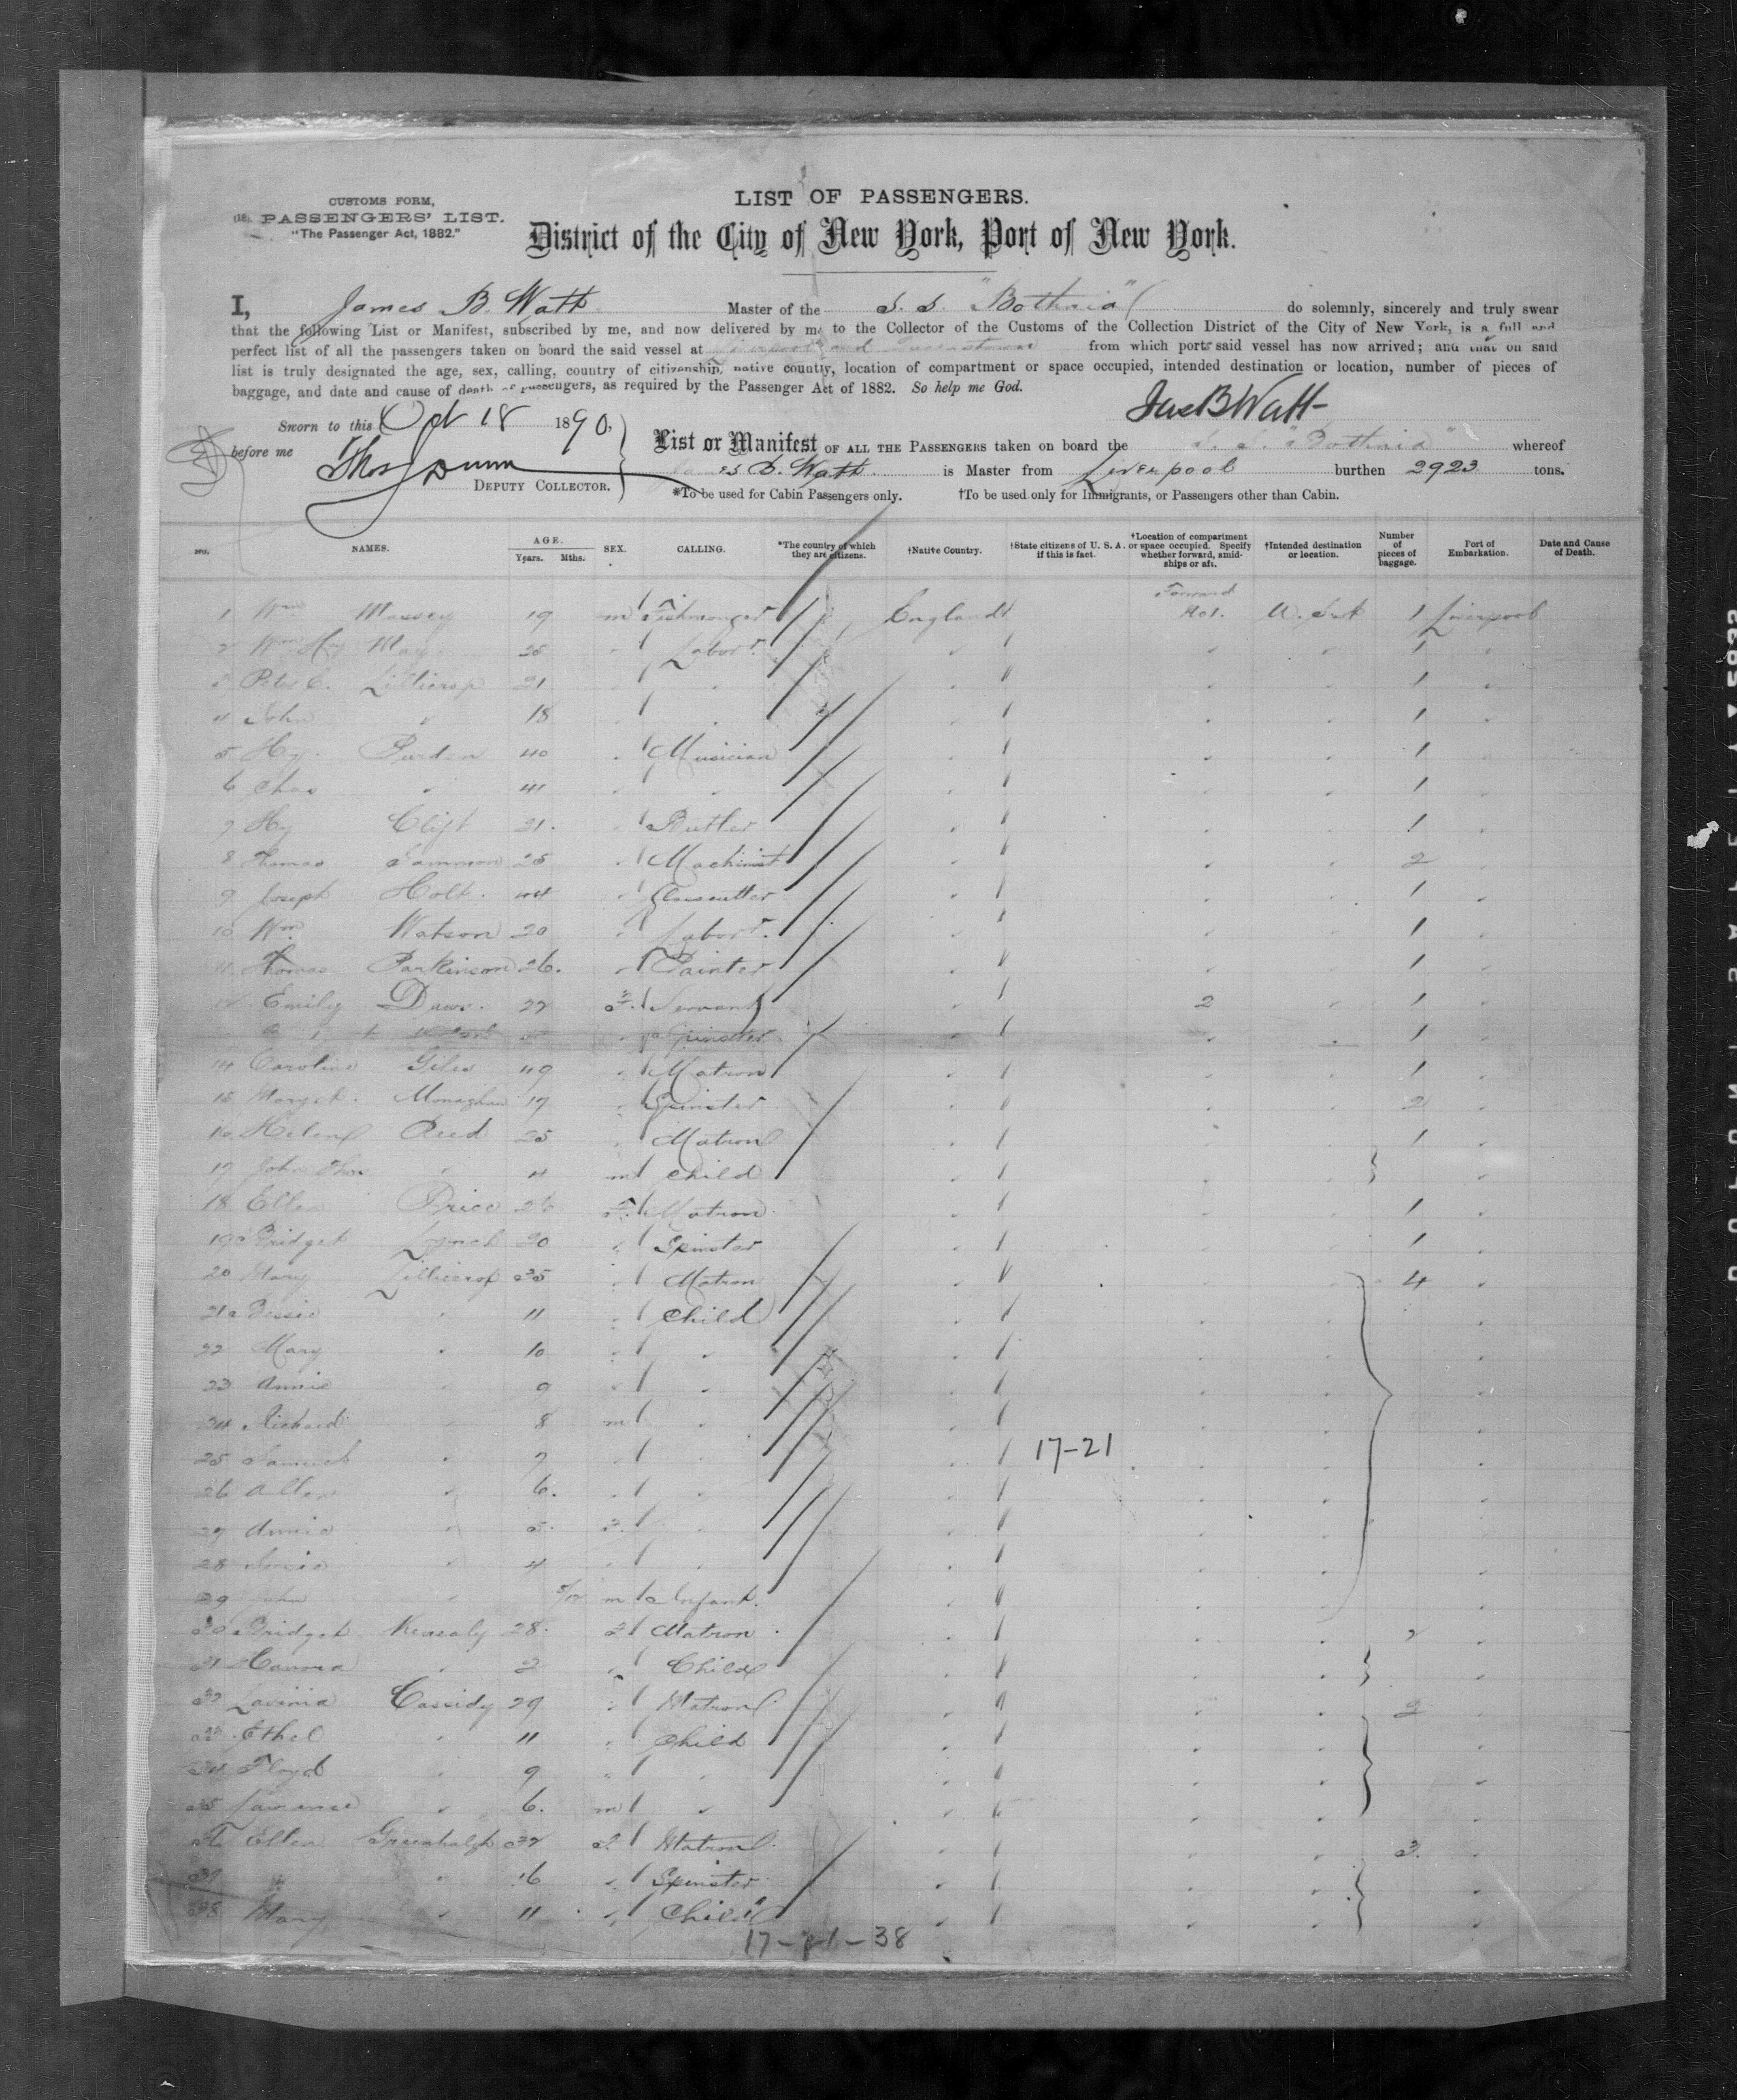 LIST OF PASSENGERS.
CUSTOMS FORM,
(18). PASSENGERS' LIST.
"The Passenger Act, 1882."
District of the City of New York, Port of New York.
I, James B. Watt Master of the S. S. "Bothnia" do solemnly, sincerely and truly swear
that the following List or Manifest, subscribed by me, and now delivered by me to the Collector of the Customs of the Collection District of the City of New York, is a full and
perfect list of all the passengers taken on board the said vessel at Liverpool and Queenstown from which ports said vessel has now arrived; and that on said
list is truly designated the age, sex, calling, country of citizenship, native country, location of compartment or space occupied, intended destination or location, number of pieces of
baggage, and date and cause of death of passengers, as required by the Passenger Act of 1882. So help me God.
Jas B Watt
Sworn to this Oct 18 1890,
before me Thos J Dunn
DEPUTY COLLECTOR.
List or Manifest OF ALL THE PASSENGERS taken on board the S. S. "Bothnia" whereof
James B. Watt is Master from Liverpool burthen 2923 tons.
*To be used for Cabin Passengers only. †To be used only for Immigrants, or Passengers other than Cabin.
No. NAMES. AGE. Years. Mths. SEX. CALLING. *The country of which they are citizens. †Native Country. †State citizens of U. S. A. if this is fact. †Location of compartment or space occupied. Specify whether forward, amidships or aft. †Intended destination or location. Number of pieces of baggage. Port of Embarkation. Date and Cause of Death.
1 Wm Massey 19 m Fishmonger England Forward No1. 1 Liverpool
2 Wm Hy May 25 " Labor. " " " 1 "
3 Peter C. Lillicrap 21 " " " " " 1 "
4 John " 18 " " " " " 1 "
5 Hy. Purdon 40 " Musician " " " 1 "
6 Chas " 41 " " " " " 1 "
7 Hy Clift 21. " Butler " " " 1 "
8 Thomas Sammon 25 " Machinist " " " 2 "
9 Joseph Holt. 44 " Glasscutter " " " 1 "
10 Wm Watson 20 " Labor. " " " 1 "
11 Thomas Parkinson 26. " Painter " " " 1 "
12 Emily Daws. 22 F. Servant " 2 " 1 "
" Spinster " " " 1 "
14 Caroline Giles 49 " Matron " " " 1 "
15 Monaghan 17 " Spinster " " " 2 "
16 Helena Reed 25 " Matron " " " 1 "
17 John Thos " 4 m child " " " "
18 Ellen Price F. Matron " " " 1 "
19 Bridget Lynch 20 " Spinster " " " 1 "
20 Mary Lillicrap 35 " Matron " " " 4 "
21 Bessie " 11 " Child " " " "
22 Mary " 10 " " " " " "
23 Annie " 9 " " " " " "
24 Richard " 8 m " " " " "
25 Samuel " 7 " " " " " "
17-21
26 Allen " 6. " " " " " "
27 Annie " 5. F. " " " " "
28 " 4 " " " " " "
29 John " 5/12 m Infant. " " " "
30 Bridget Kenealy 28. F Matron " " " 2 "
31 Hanora " 2 " Child " " " "
32 Lavinia Cassidy 29 " Matron " " " 2 "
33 Ethel " 11 " Child " " " "
34 Floyd " 9 " " " " " "
35 Lawrence " 6. m " " " " "
36 Ellen Greenhalgh 32 F. Matron " " " 3. "
37 " " 16 " Spinster " " " "
38 Mary " 11 " Child " " " "
17-21-38